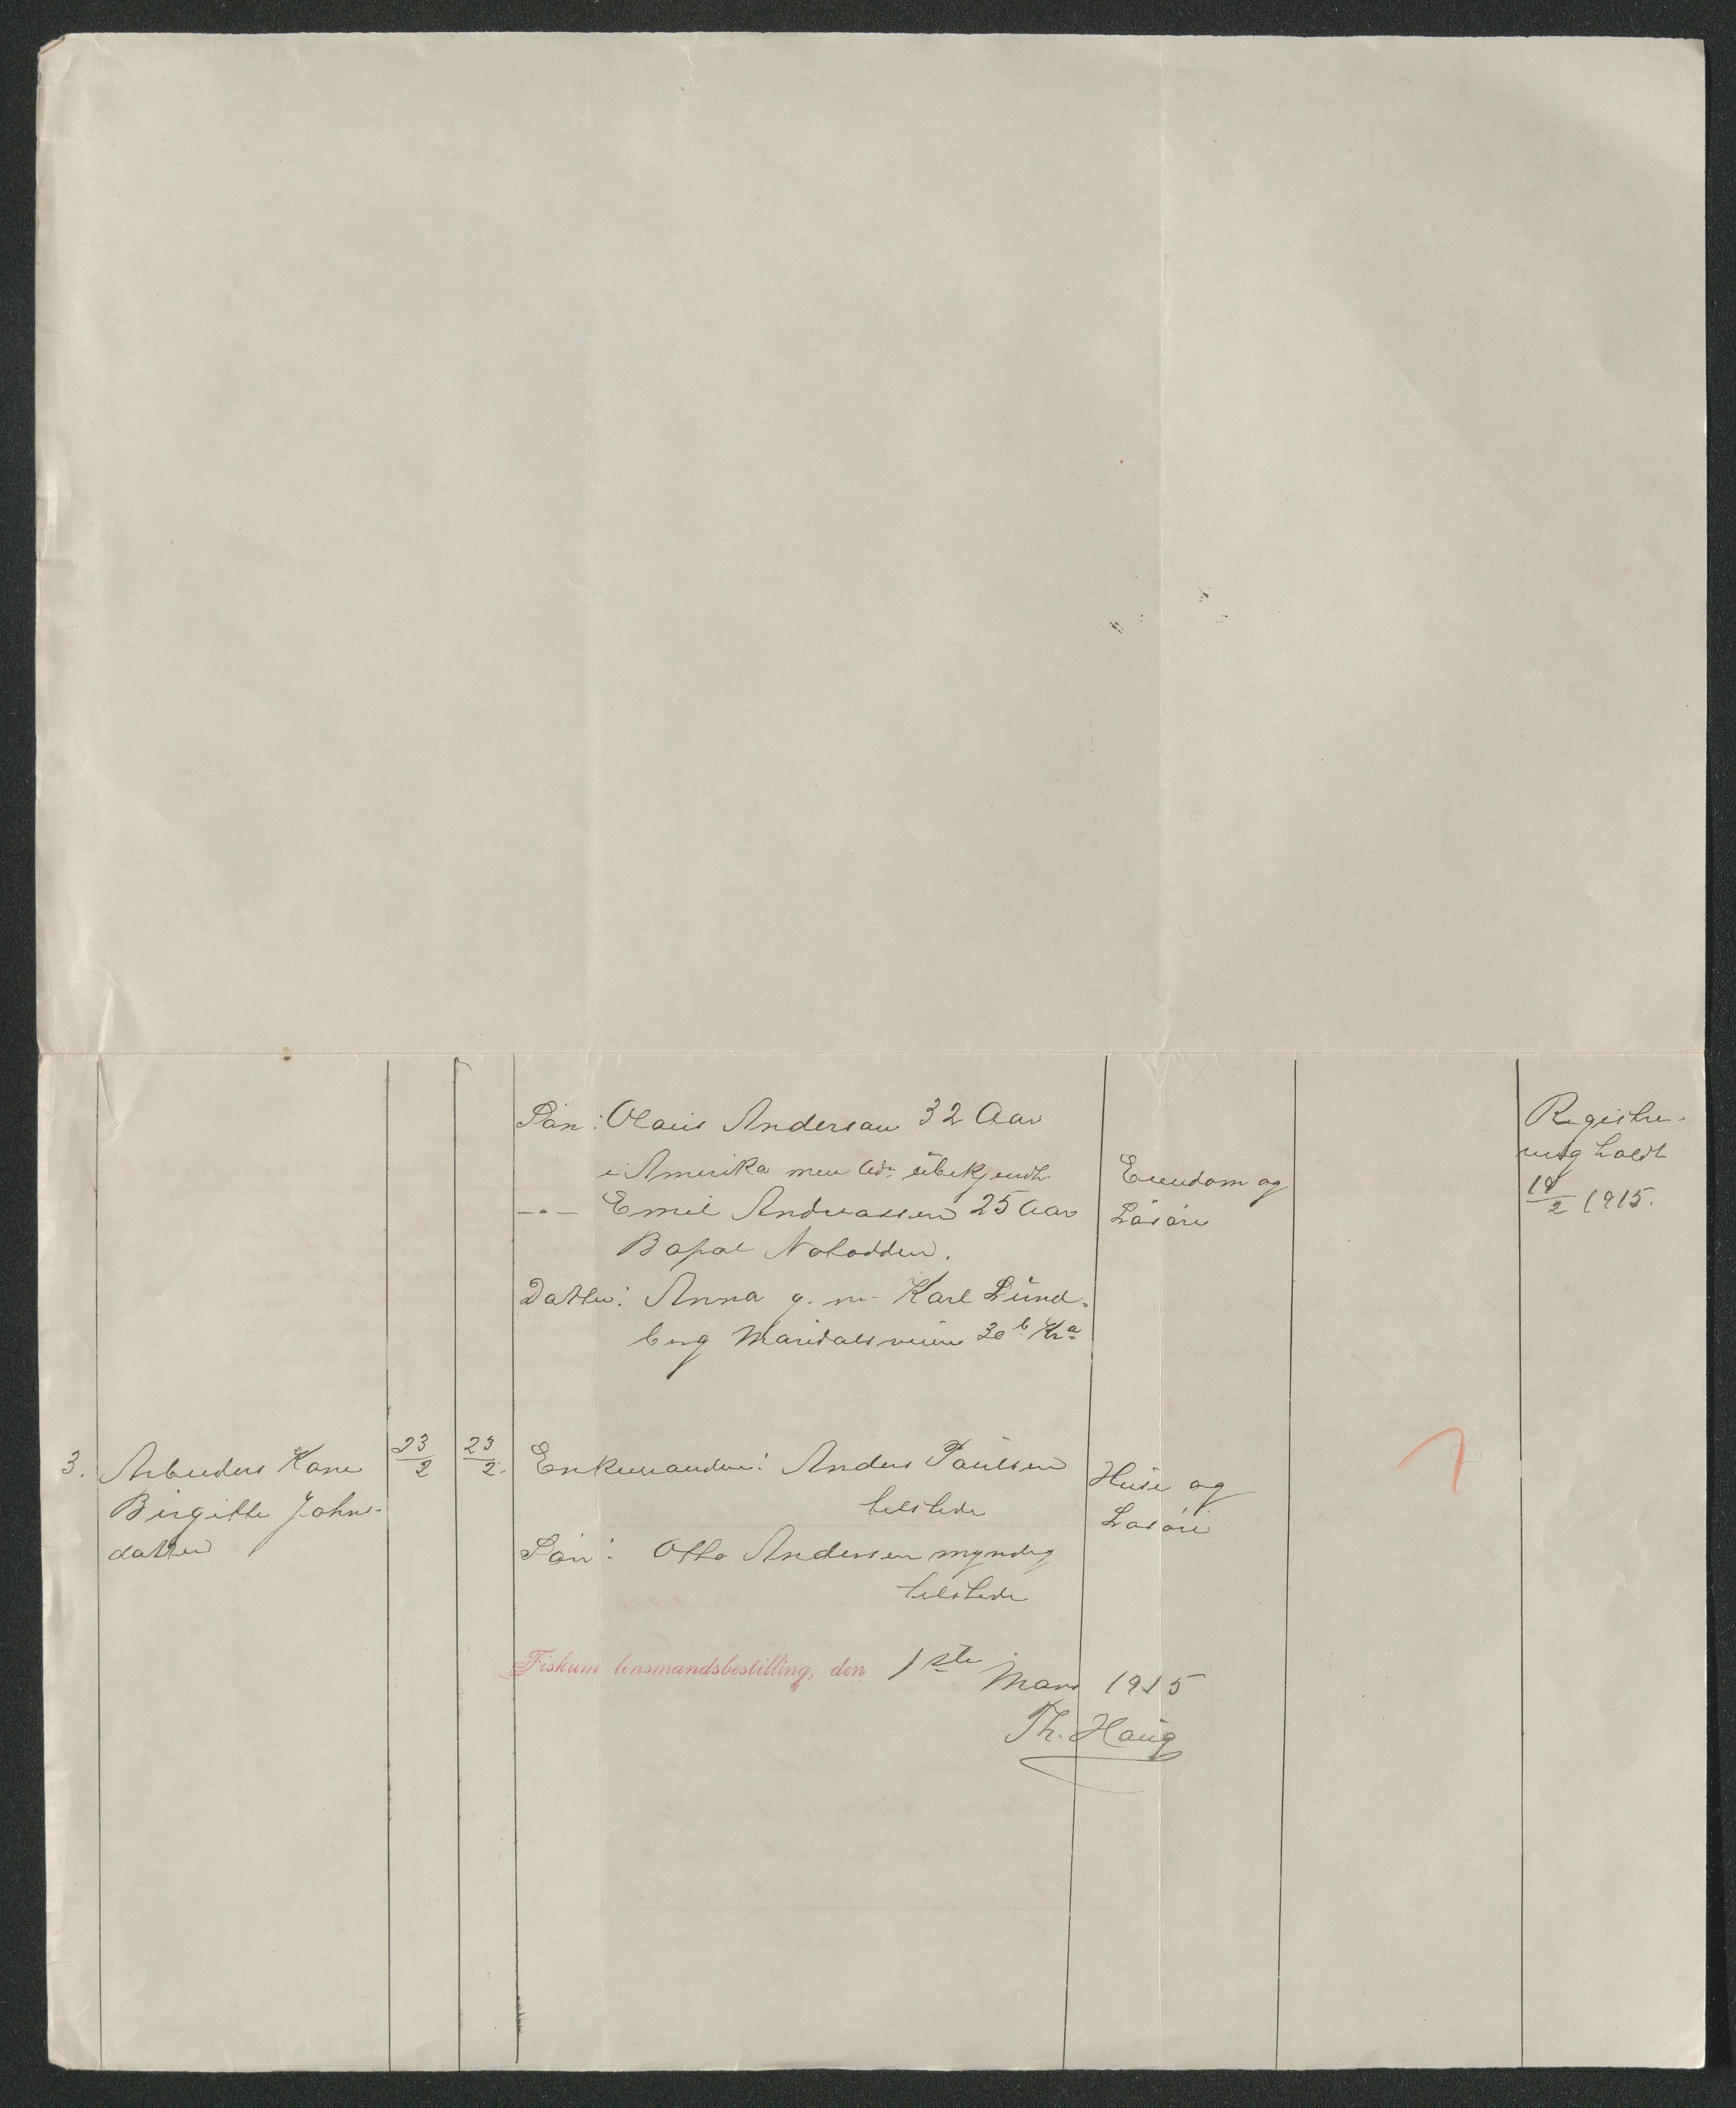 Søn: Olaus Andersau 32 Aar
i Amerika men Adr. übekjendt.
-"- Emil Andreassen 25 Aar
Bopæl Notodden.
Datter: Anna g. m. Karl Lund-
berg Maridalsveien 30 b Kra
Eiendom og
Løsøre
Registre-
ring holdt
18/2 1915.
3. Arbeiders Kone
Birgitte Johns-
datter
23/2
23/2.
Enkemanden: Anders Paulsen
tilstede
Søn: Otto Andersen myndig
tilstede
Huse og
Løsøre
Fiskum lensmandsbestilling, den 1ste
Mars 1915
Th. Haug